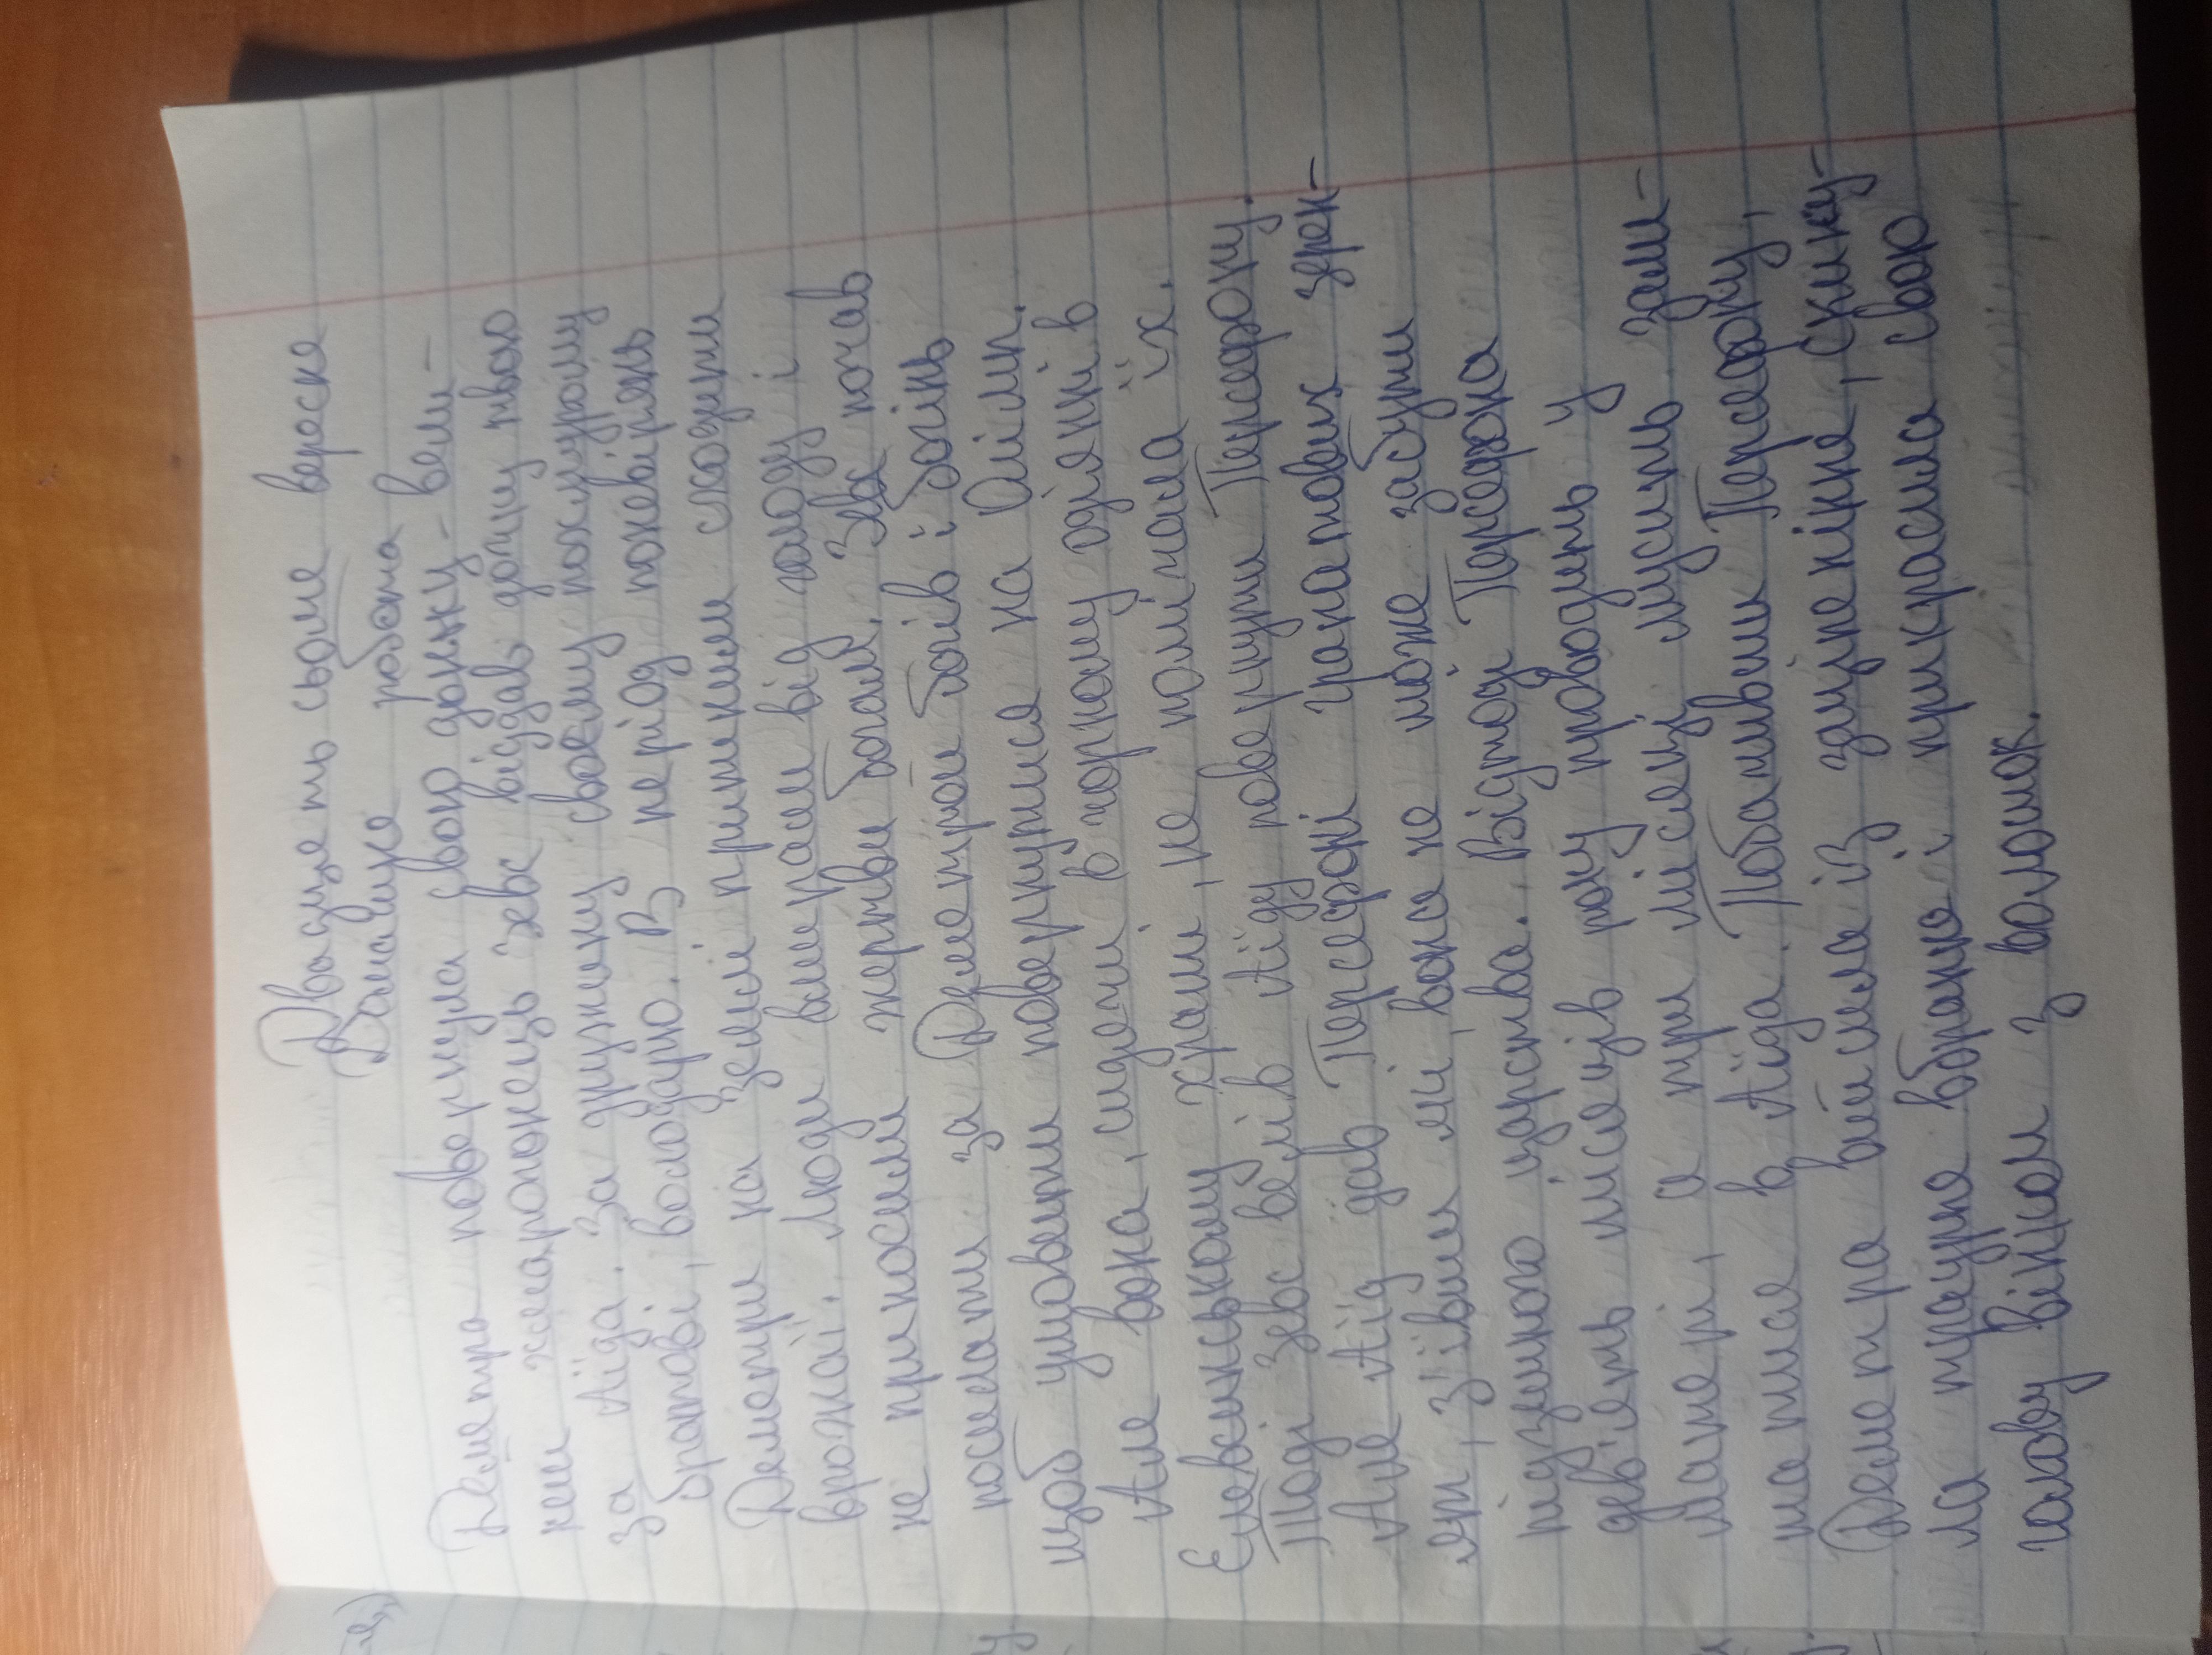 Двадцять сьоме вересня
Домашня робота
Деметра повернула свою доньку - вели-
кий хмарогонець Зевс віддав дочку твою
за Аїда. За дружину своєму похмурому
братові, володарю. В період поневірянь
Деметри на землі припинили сходити
врожаї. Люди вмирали від голоду і
не приносили жертви богам. Зевс почав
посилати за Деметрой богів і богинь
щоб умовити повернутися на Олімп.
Але вона, сидячи в чорному одіянні в
Елевсинському храмі, не помічала їх.
Тоді Зевс велів Аїду повернути Персефону.
Але Аїд дав Персефоні гранатових зерен-
ят, з'ївши які вона не може забути
підземного царства. Відтоді Персефона
дев'ять місяців року проводить у
матері, а три місяці мусить зали-
шатися в Аїда. Побачивши Персефону,
Деметра вийшла із заціпеніння, скину-
ла траурне вбрання і прикрасила свою
голову вінком з волошок.